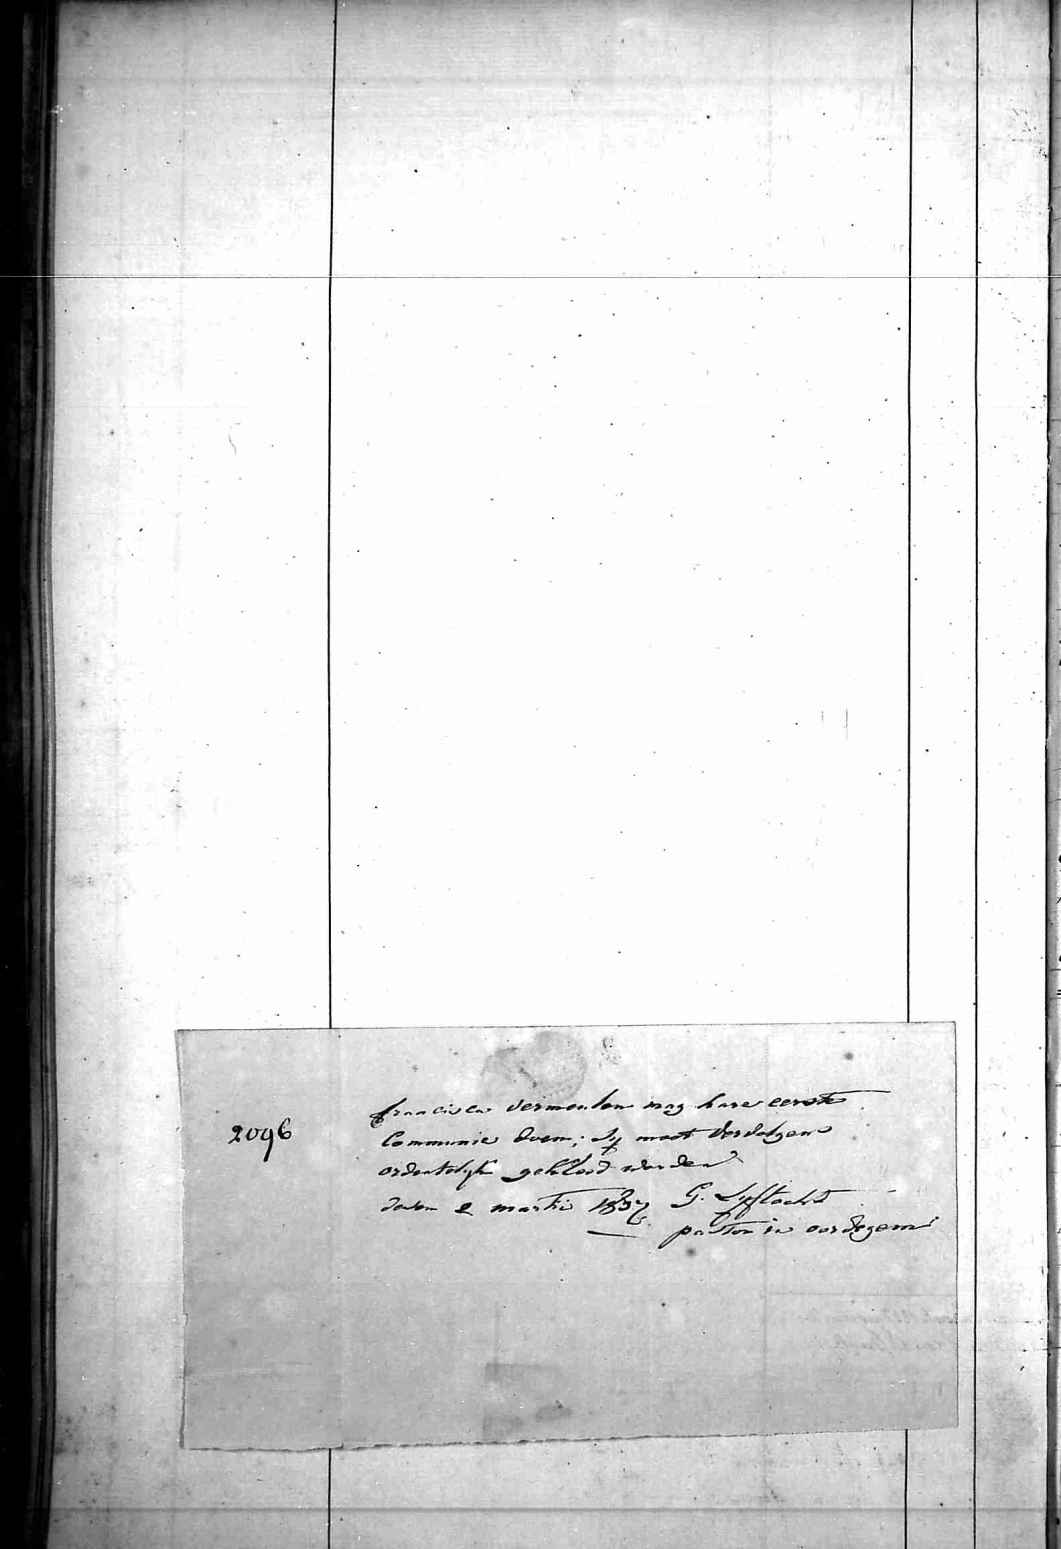 2096
francisca vermeulen mag hare eerste
Communie doen; sy moet vervolgens
ordentelyk gekleed worden
daten 2 martii 1837 G. Lyftocht
pastor in oordegem